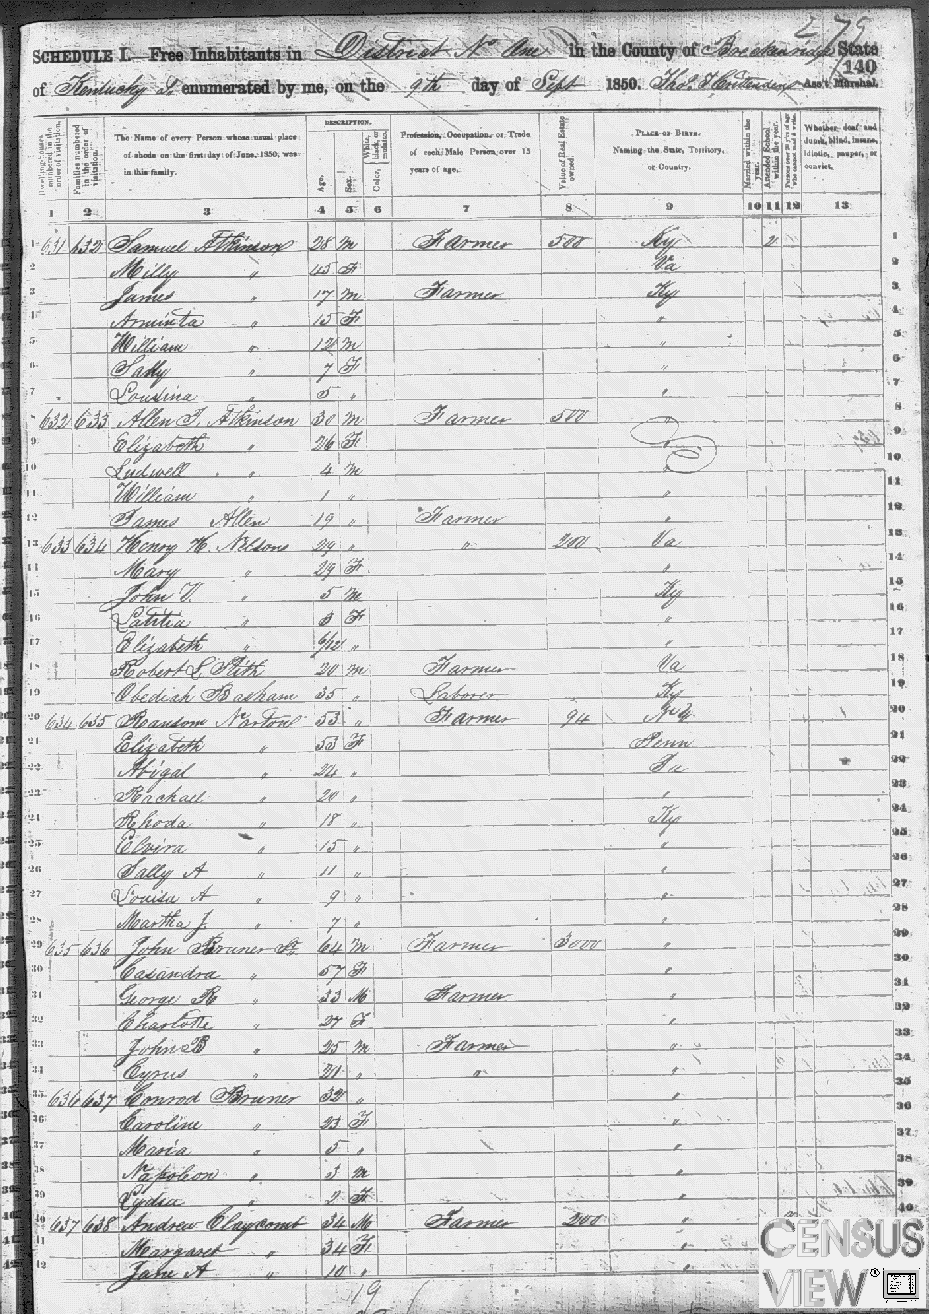 279
SCHEDULE I.—Free Inhabitants in District No One in the County of Breckenridge State
140
of Kentucky enumerated by me, on the 9th day of Sept 1850. Ass't Marshal.
Dwelling-houses numbered in the order of visitation.
Families numbered in the order of visitation.
The Name of every Person whose usual place of abode on the first day of June, 1850, was in this family.
DESCRIPTION.
Age.
Sex.
Color, White, black, or mulatto.
Profession, Occupation, or Trade of each Male Person, over 15 years of age.
Value of Real Estate owned.
PLACE OF BIRTH. Naming the State, Territory, or Country.
Married within the year.
Attended School within the year.
Whether deaf and dumb, blind, insane, idiotic, pauper, or convict.
1 2 3 4 5 6 7 8 9 10 11 12 13
1 631 632 Samuel Atkinson 28 M Farmer 500 Ky 1
2 Milly " 45 F Va 2
3 James " 17 M Farmer Ky 3
4 Arminta " 15 F " 4
5 William " 12 M " 5
6 Sally " 7 F " 6
7 Lousina " 5 " " 7
8 632 633 Allen T. Atkinson 30 M Farmer 500 " 8
9 Elizabeth " 26 F " 9
10 Ludwell " 4 M " 10
11 William " 1 " " 11
12 James Allen 19 " Farmer " 12
13 633 634 Henry H. Nelson 29 " " 200 Va 13
14 Mary " 29 F " 14
15 John V. " 5 M Ky 15
16 Latitia " 3 F " 16
17 Elizabeth " 6/12 " " 17
18 Robert L Stith 20 M Farmer Va 18
19 Obediah Basham 35 " Laborer Ky 19
20 634 635 Ransom Norton 53 " Farmer 94 20
21 Elizabeth " 53 F Penn 21
22 Abigal " 24 " 22
23 Rachael " 20 " " 23
24 Rhoda " 18 " Ky 24
25 Elvira " 15 " " 25
26 Sally A " 11 " " 26
27 Louisa A " 9 " " 27
28 Martha J. " 7 " " 28
29 635 636 John Bruner Sr. 64 M Farmer 3000 " 29
30 Casandra " 57 F " 30
31 George R " 33 M Farmer " 31
32 Charlotte " 27 F " 32
33 John B " 25 M Farmer " 33
34 Cyrus " 21 " " " 34
35 636 637 Conrod Bruner 32 " 35
36 Caroline " 23 F " 36
37 Maria " 5 " " 37
38 Napoleon " 3 M " 38
39 Lydia " 2 F " 39
40 637 638 Andrew Claycomb 34 M Farmer 200 " 40
41 Margaret " 34 F "
42 Jane A " 10 " "
19
CENSUS
VIEW®